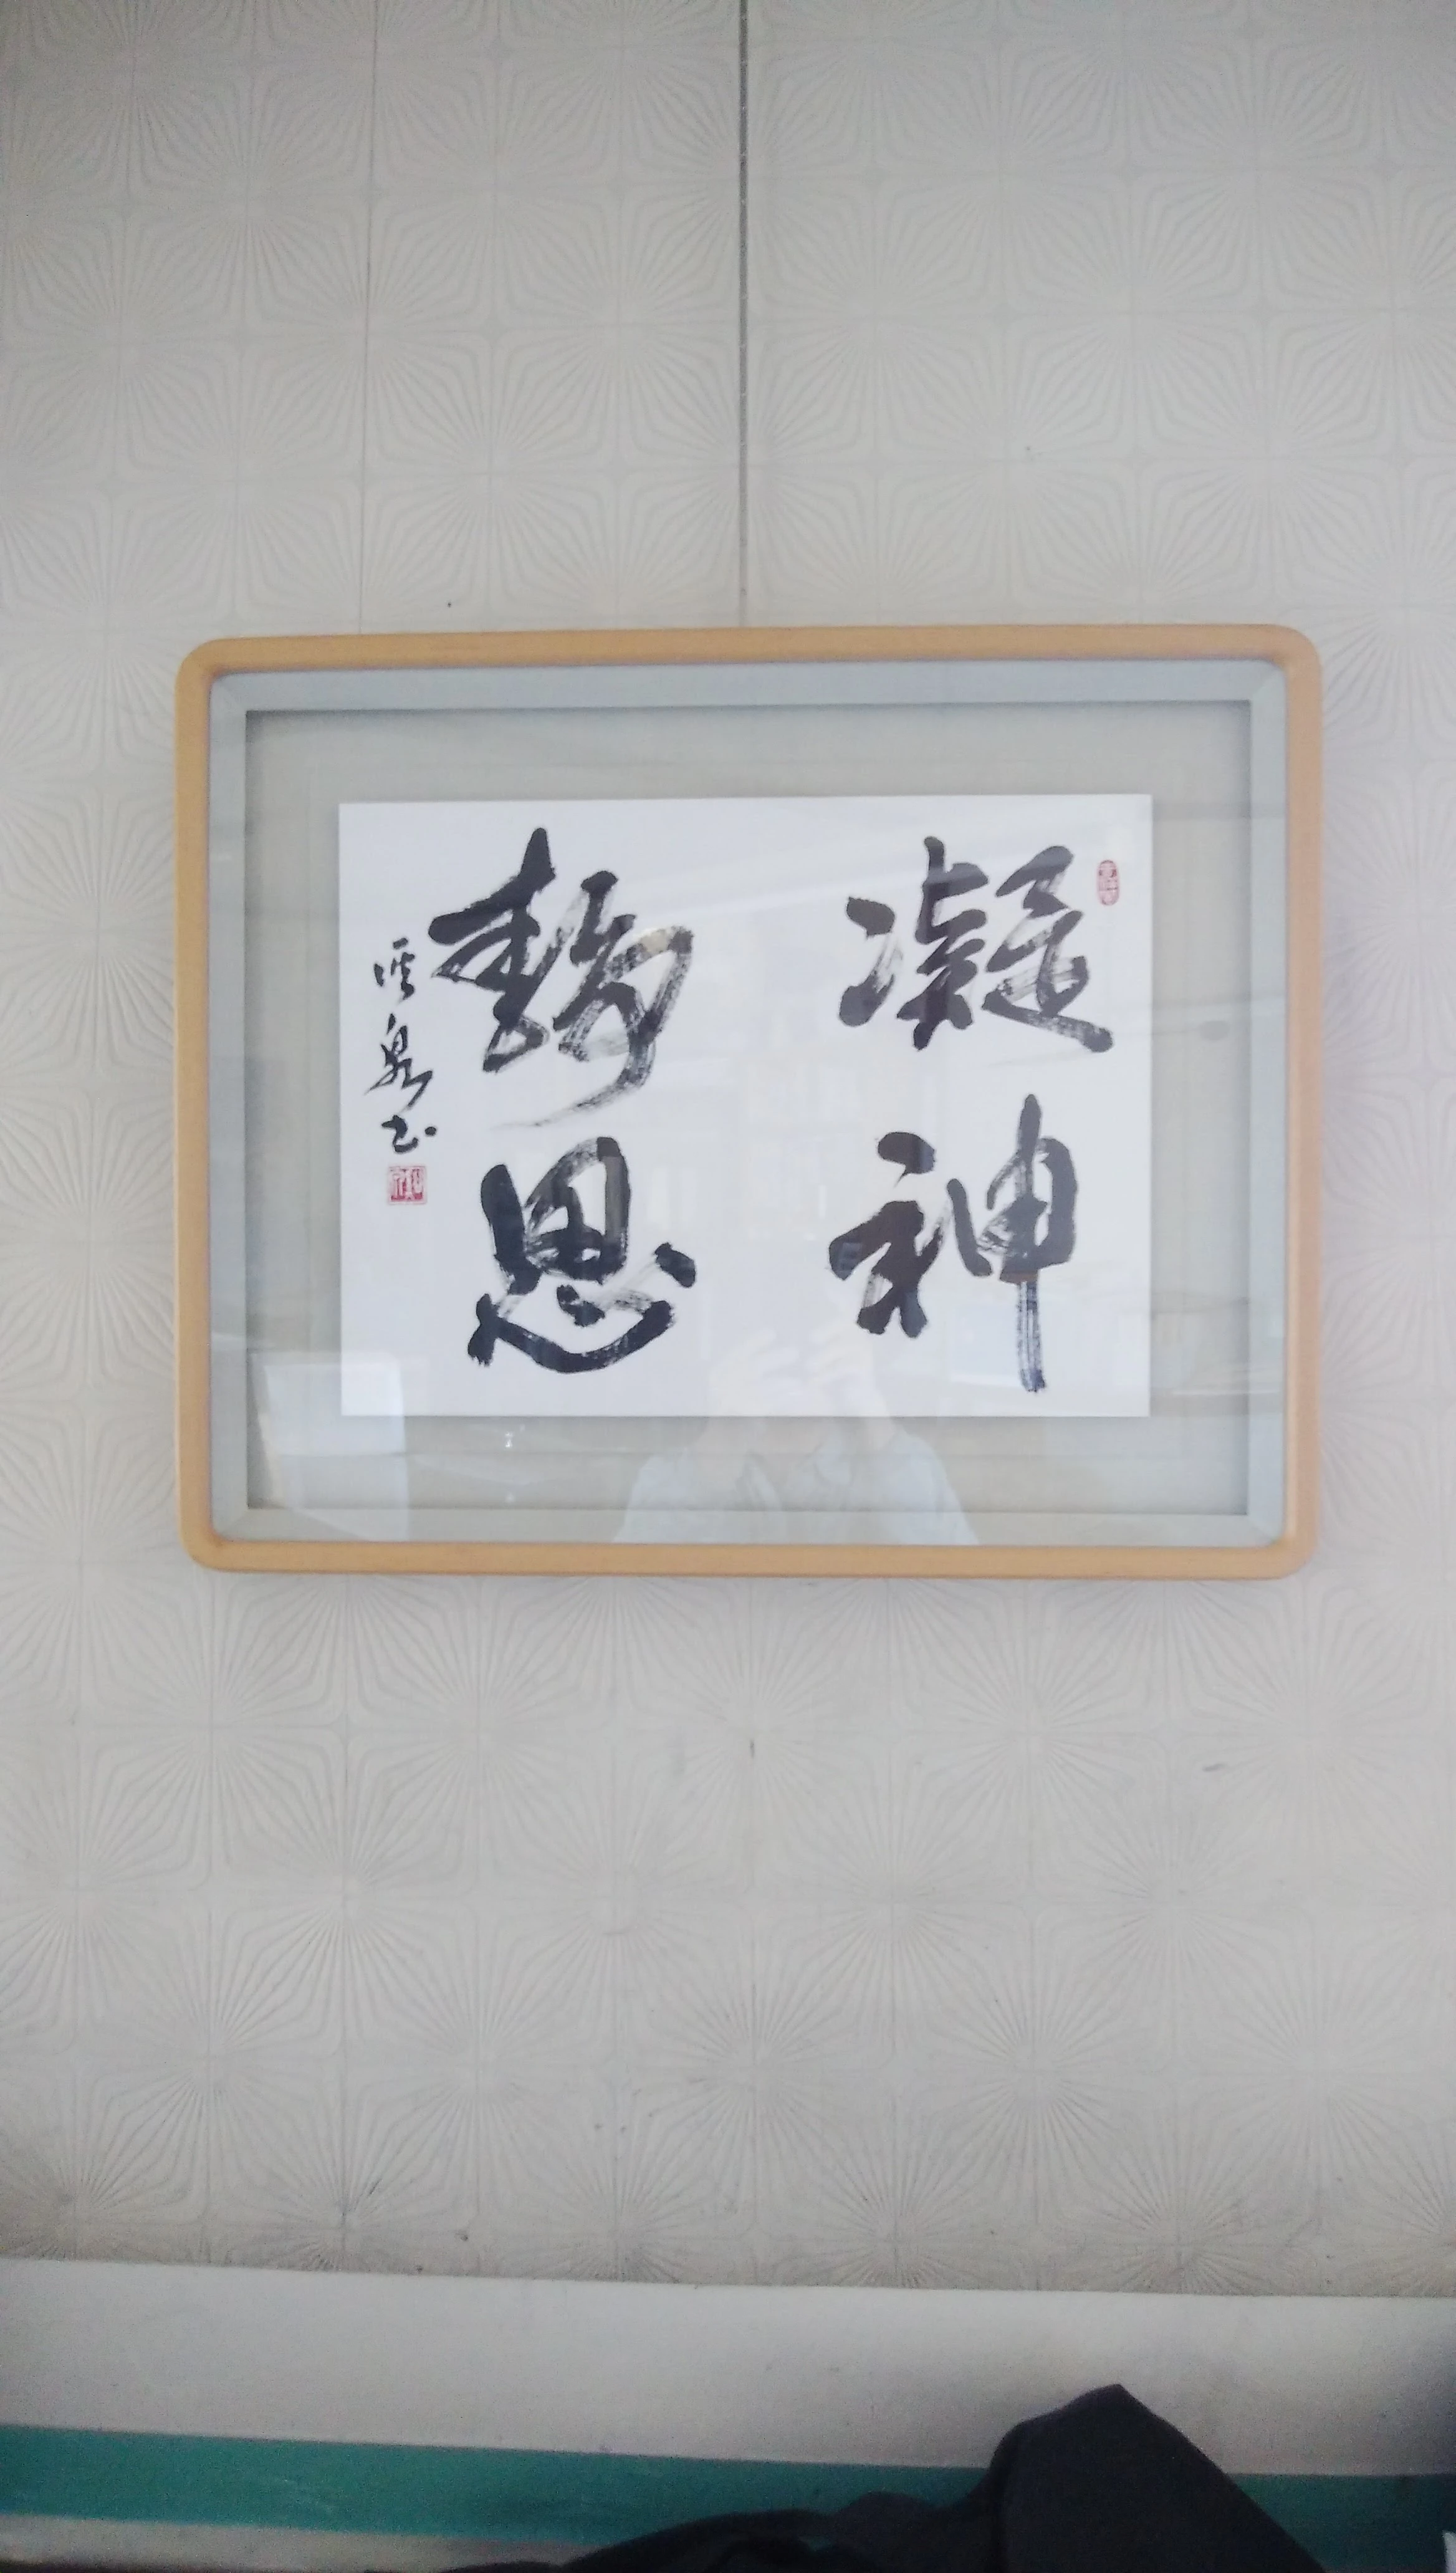 凝神
静思
溪泉书